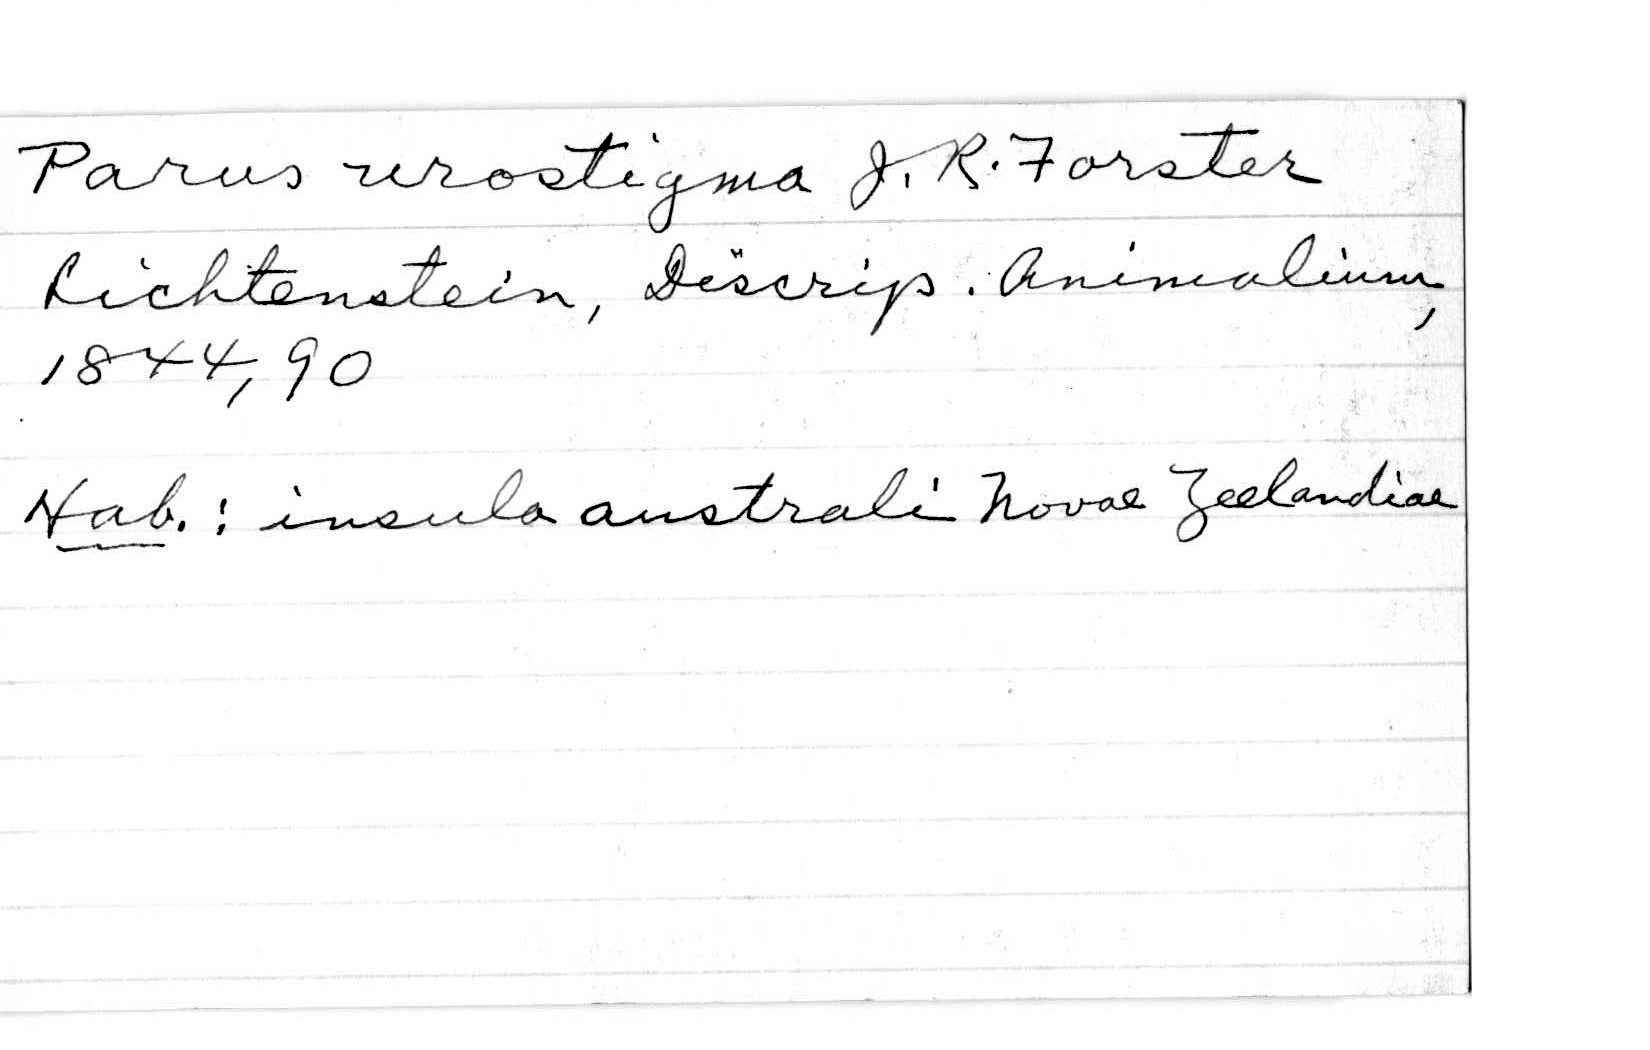 Parus urostigma J. R. Forster
Lichtenstein, Descrip. Animalium,
1844, 90
Hab. : insula australi Novae Zeelandiae